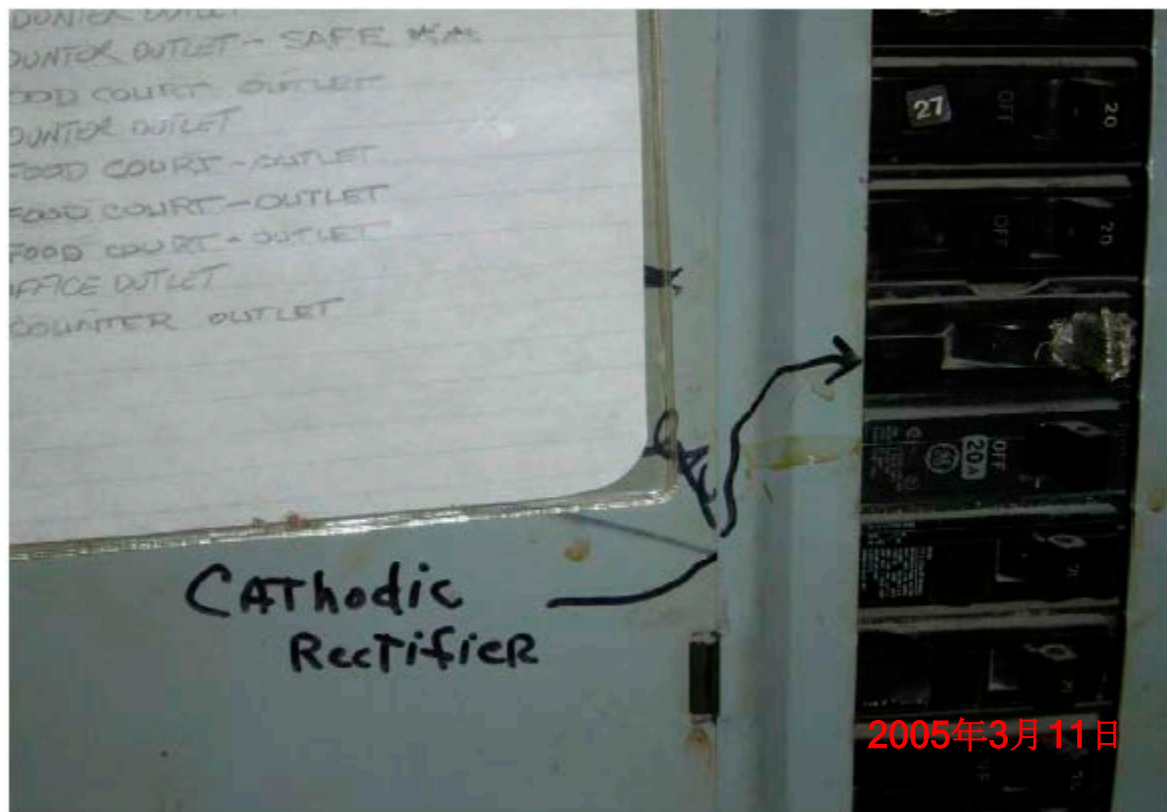 OUNTER OUTLET
OUNTER OUTLET - SAFE
OOD COURT OUTLET
OUNTER OUTLET
FOOD COURT - OUTLET
FOOD COURT - OUTLET
FOOD COURT - OUTLET
OFFICE OUTLET
COUNTER OUTLET
CAThodic
RectifieR
27 OFF 20
OFF 20
20A OFF
2005年3月11日